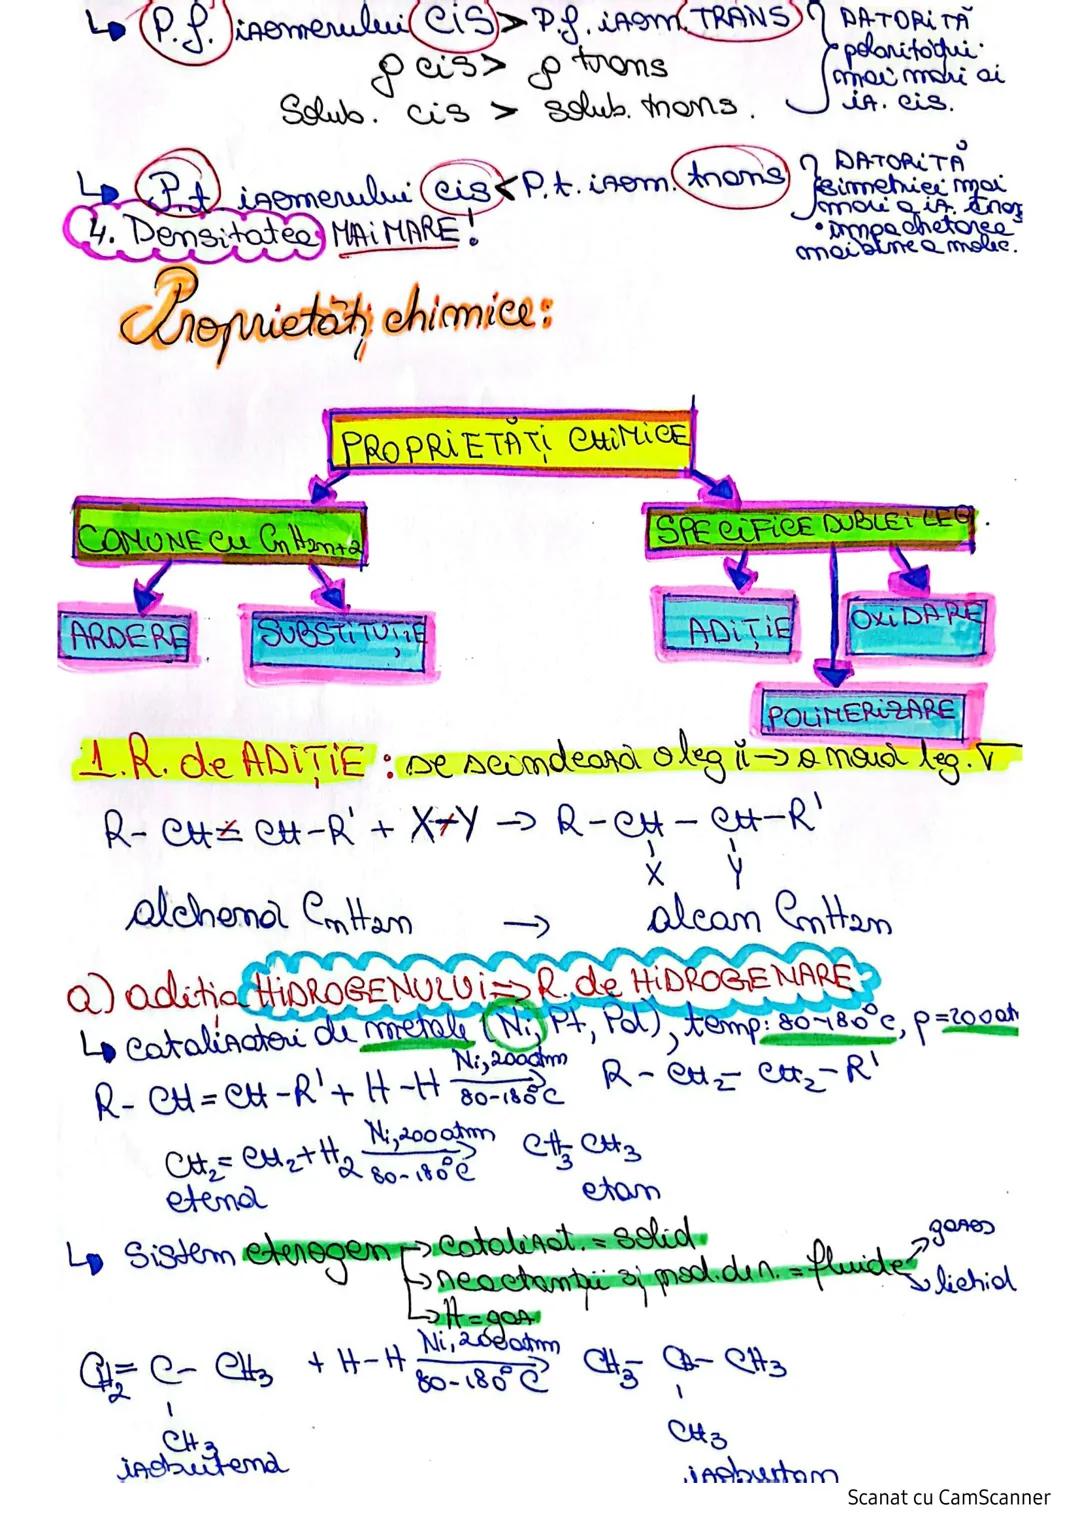 ↳ P.f. izomerului CiS > P.f. izom. TRANS } DATORITĂ
polarității
ρ cis > ρ trans
mai mari ai
Solub. cis > solub. trans.
iz. cis.
↳ P.t izomerului cis < P.t. izom. trans } DATORITĂ
simetriei mai
mari a iz. trans
• împachetarea
mai bine a molec.
4. Densitatea MAI MARE!
Proprietăți chimice:
PROPRIETĂȚI CHIMICE
COMUNE CU CnH2n+2
SPECIFICE DUBLEI LEG.
ARDERE
SUBSTITUȚIE
ADIȚIE
OXIDARE
POLIMERIZARE
1. R. de ADIȚIE : se scindează o leg π → o nouă leg. σ
R- CH = CH-R' + X-Y → R-CH - CH-R'
X Y
alchenă CnH2n → alcan CnH2n
a) adiția HIDROGENULUI => R. de HIDROGENARE
↳ catalizatori de metale (Ni, Pt, Pd), temp: 80-180°C, p=200at
R- CH = CH -R' + H-H Ni, 200atm → 80-180°C R - CH2 - CH2-R'
CH2 = CH2 + H2 Ni, 200atm → 80-180°C CH3 CH3
etenă etan
↳ Sistem eterogen → catalizat. = solid
→ reactanții și prod. din r. = fluide → gazos
→ lichid
→ H = gaz
CH2 = C - CH3 + H-H Ni, 200atm → 80-180°C CH3- CH- CH3
CH3 CH3
izobutenă izobutan
Scanat cu CamScanner